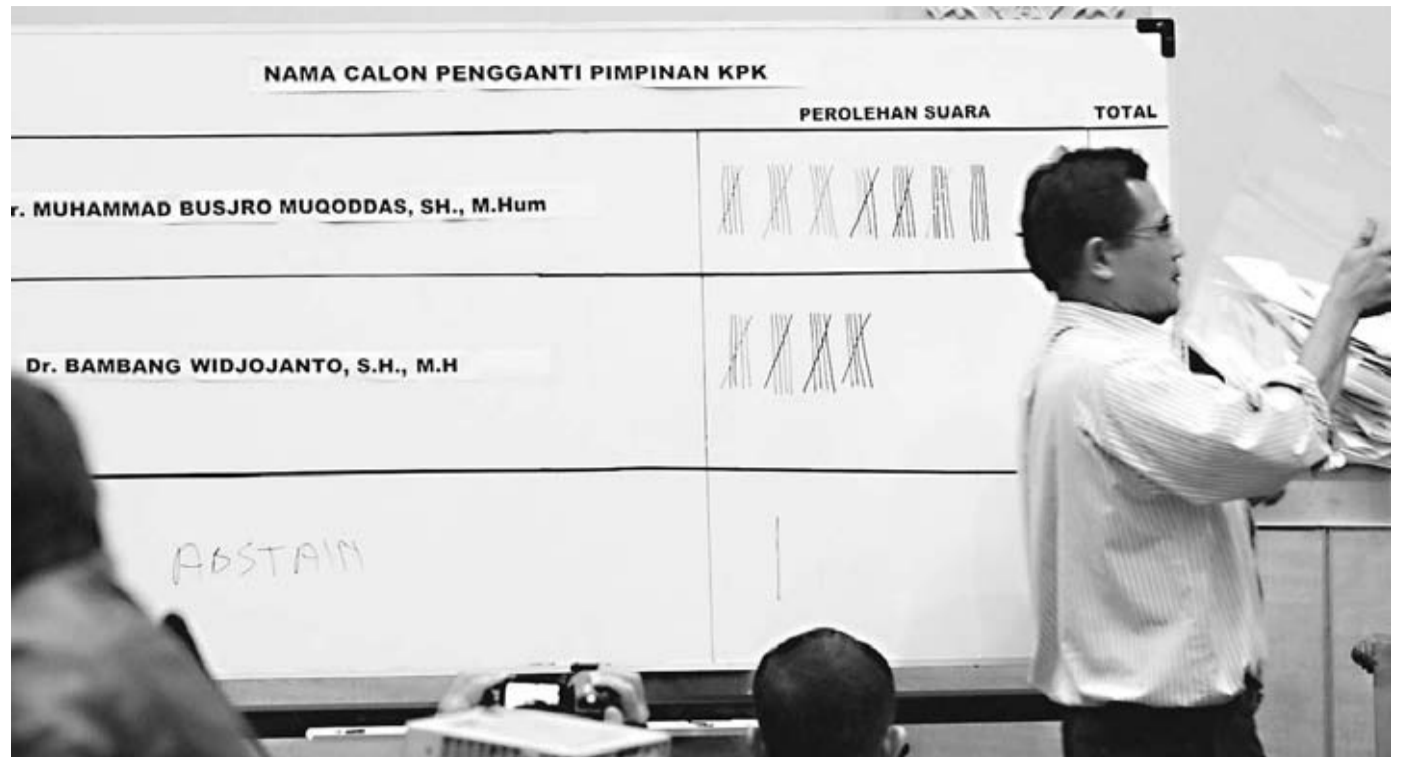 NAMA CALON PENGGANTI PIMPINAN KPK
PEROLEHAN SUARA TOTAL
r. MUHAMMAD BUSJRO MUQODDAS, SH., M.Hum
Dr. BAMBANG WIDJOJANTO, S.H., M.H
ABSTAIN